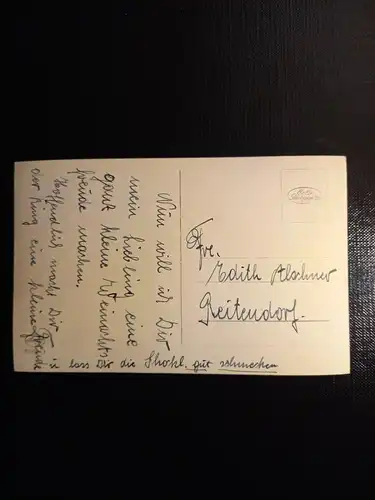 Nun will ich Dir
mein Liebling eine
ganz kleine Weinachts
freude machen.
Hoffendlich macht Dir
der Ring eine kleine Freude
u lass Dir die Shokl. gut schmecken
Frl.
Edith Alschner
Reitendorf.